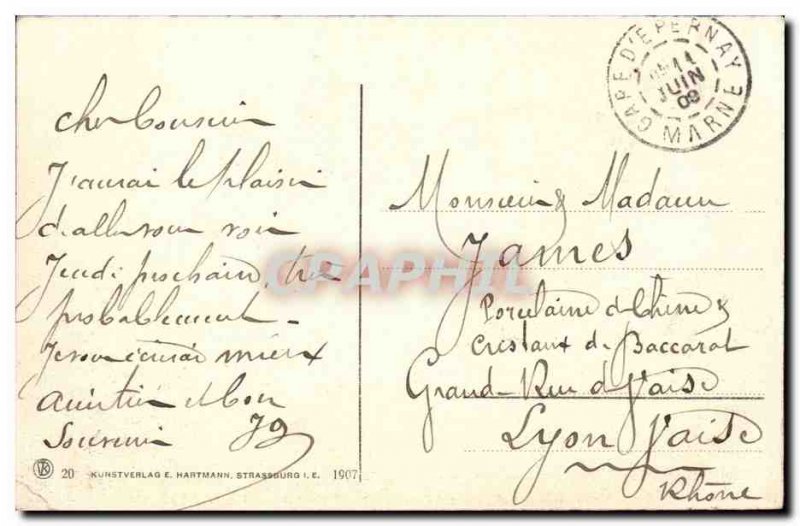 GARE D'EPERNAY
11
JUIN
09
MARNE
cher Cousin
J'aurai le plaisir
d'aller vous voir
Jeudi prochain, très
probablement -
Je vous écrirai mieux
amitié et bon
Souvenir
Monsieur & Madame
James
Porcelaine de Chine &
Cristaux de Baccarat
Grand-Rue d Vaise
Lyon Vaise
Rhône
CPAPHIL
20 KUNSTVERLAG E. HARTMANN, STRASSBURG I. E. 1907